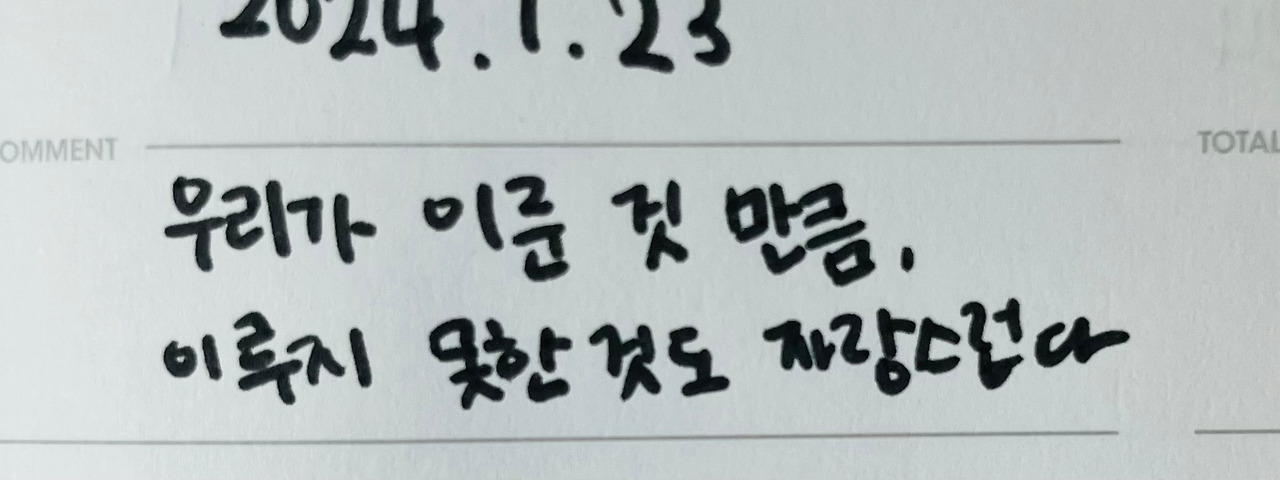 2024.1.23
OMMENT
TOTAL
우리가 이룬 것 만큼,
이루지 못한 것도 자랑스런다